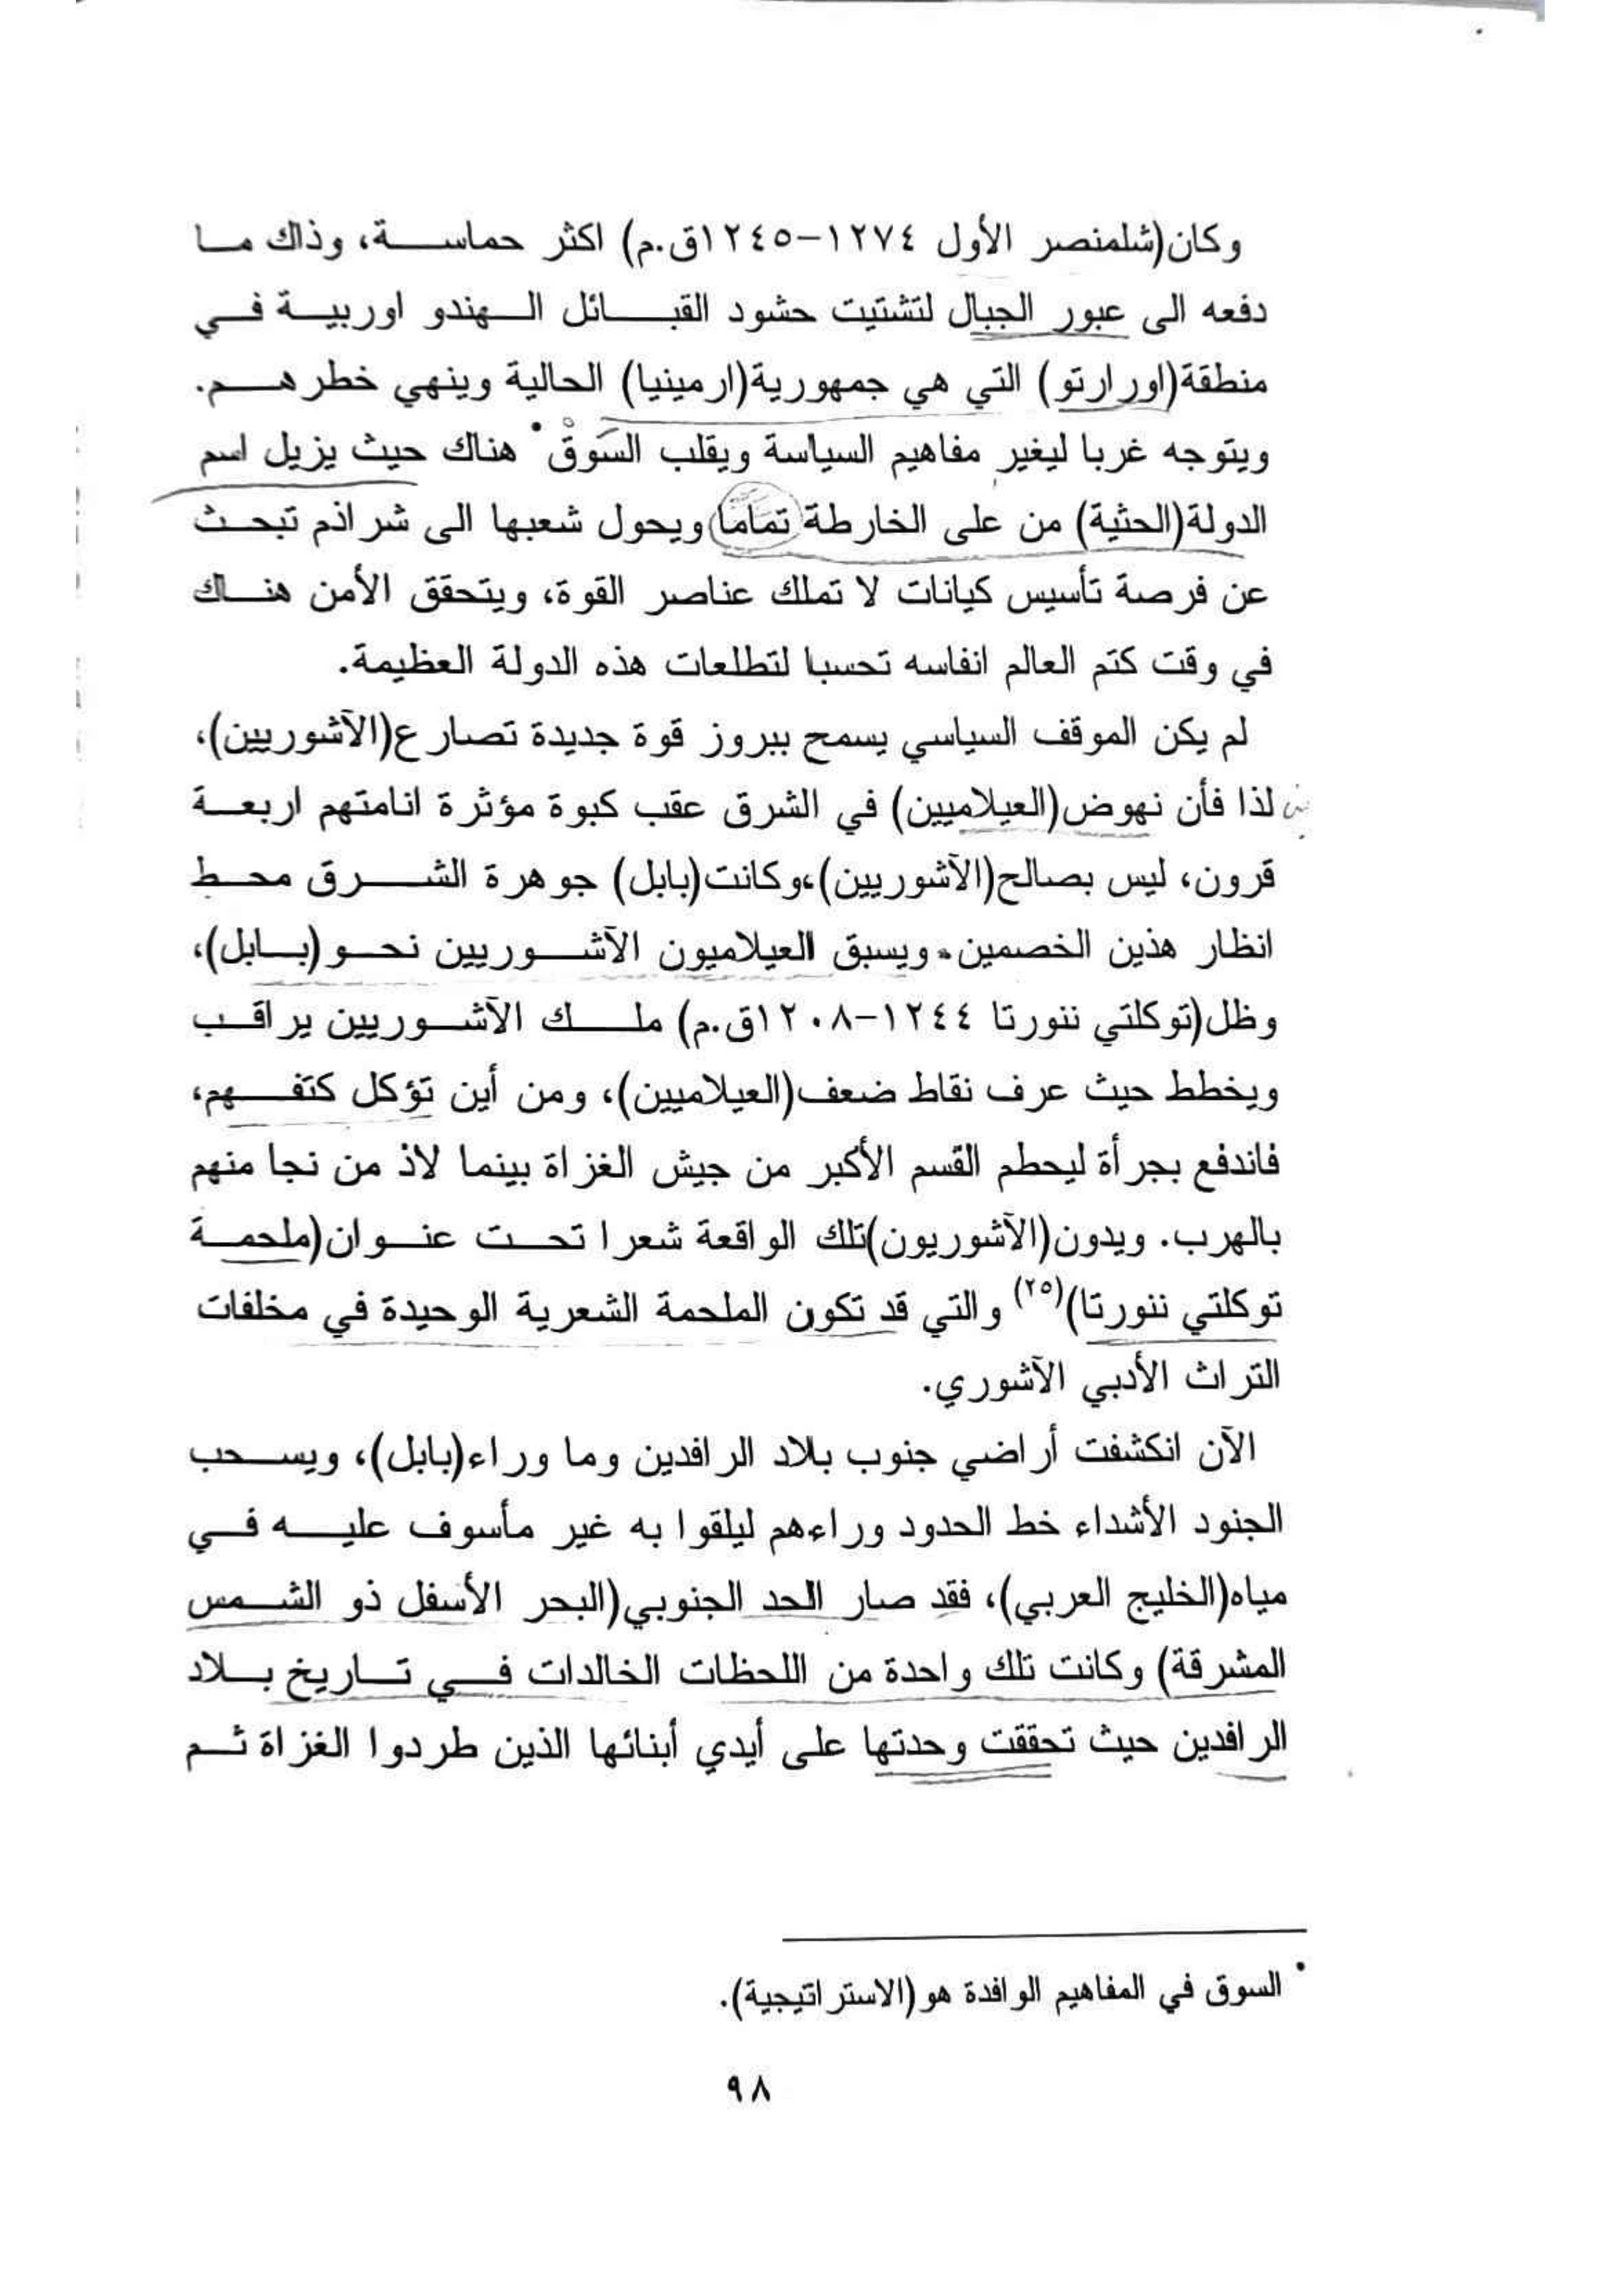 وكان(شلمنصر الأول ١٢٧٤-١٢٤٥ق.م) اكثر حماسة، وذاك ما
دفعه الى عبور الجبال لتشتيت حشود القبائل الهندو اوربية في
منطقة(اورارتو) التي هي جمهورية(ارمينيا) الحالية وينهي خطرهم.
ويتوجه غربا ليغير مفاهيم السياسة ويقلب السَوقْ• هناك حيث يزيل اسم
الدولة(الحثية) من على الخارطة تماما ويحول شعبها الى شراذم تبحث
عن فرصة تأسيس كيانات لا تملك عناصر القوة، ويتحقق الأمن هناك
في وقت كتم العالم انفاسه تحسبا لتطلعات هذه الدولة العظيمة.
لم يكن الموقف السياسي يسمح ببروز قوة جديدة تصارع(الآشوريين)،
لذا فأن نهوض(العيلاميين) في الشرق عقب كبوة مؤثرة انامتهم اربعة
قرون، ليس بصالح(الآشوريين)،وكانت(بابل) جوهرة الشرق محط
انظار هذين الخصمين. ويسبق العيلاميون الآشوريين نحو(بابل)،
وظل(توكلتي ننورتا ١٢٤٤-١٢٠٨ق.م) ملك الآشوريين يراقب
ويخطط حيث عرف نقاط ضعف(العيلاميين)، ومن أين تؤكل كتفهم،
فاندفع بجرأة ليحطم القسم الأكبر من جيش الغزاة بينما لاذ من نجا منهم
بالهرب. ويدون(الآشوريون)تلك الواقعة شعرا تحت عنوان(ملحمة
توكلتي ننورتا)(٢٥) والتي قد تكون الملحمة الشعرية الوحيدة في مخلفات
التراث الأدبي الآشوري.
الآن انكشفت أراضي جنوب بلاد الرافدين وما وراء(بابل)، ويسحب
الجنود الأشداء خط الحدود وراءهم ليلقوا به غير مأسوف عليه في
مياه(الخليج العربي)، فقد صار الحد الجنوبي(البحر الأسفل ذو الشمس
المشرقة) وكانت تلك واحدة من اللحظات الخالدات في تاريخ بلاد
الرافدين حيث تحققت وحدتها على أيدي أبنائها الذين طردوا الغزاة ثم
• السوق في المفاهيم الوافدة هو(الاستراتيجية).
٩٨